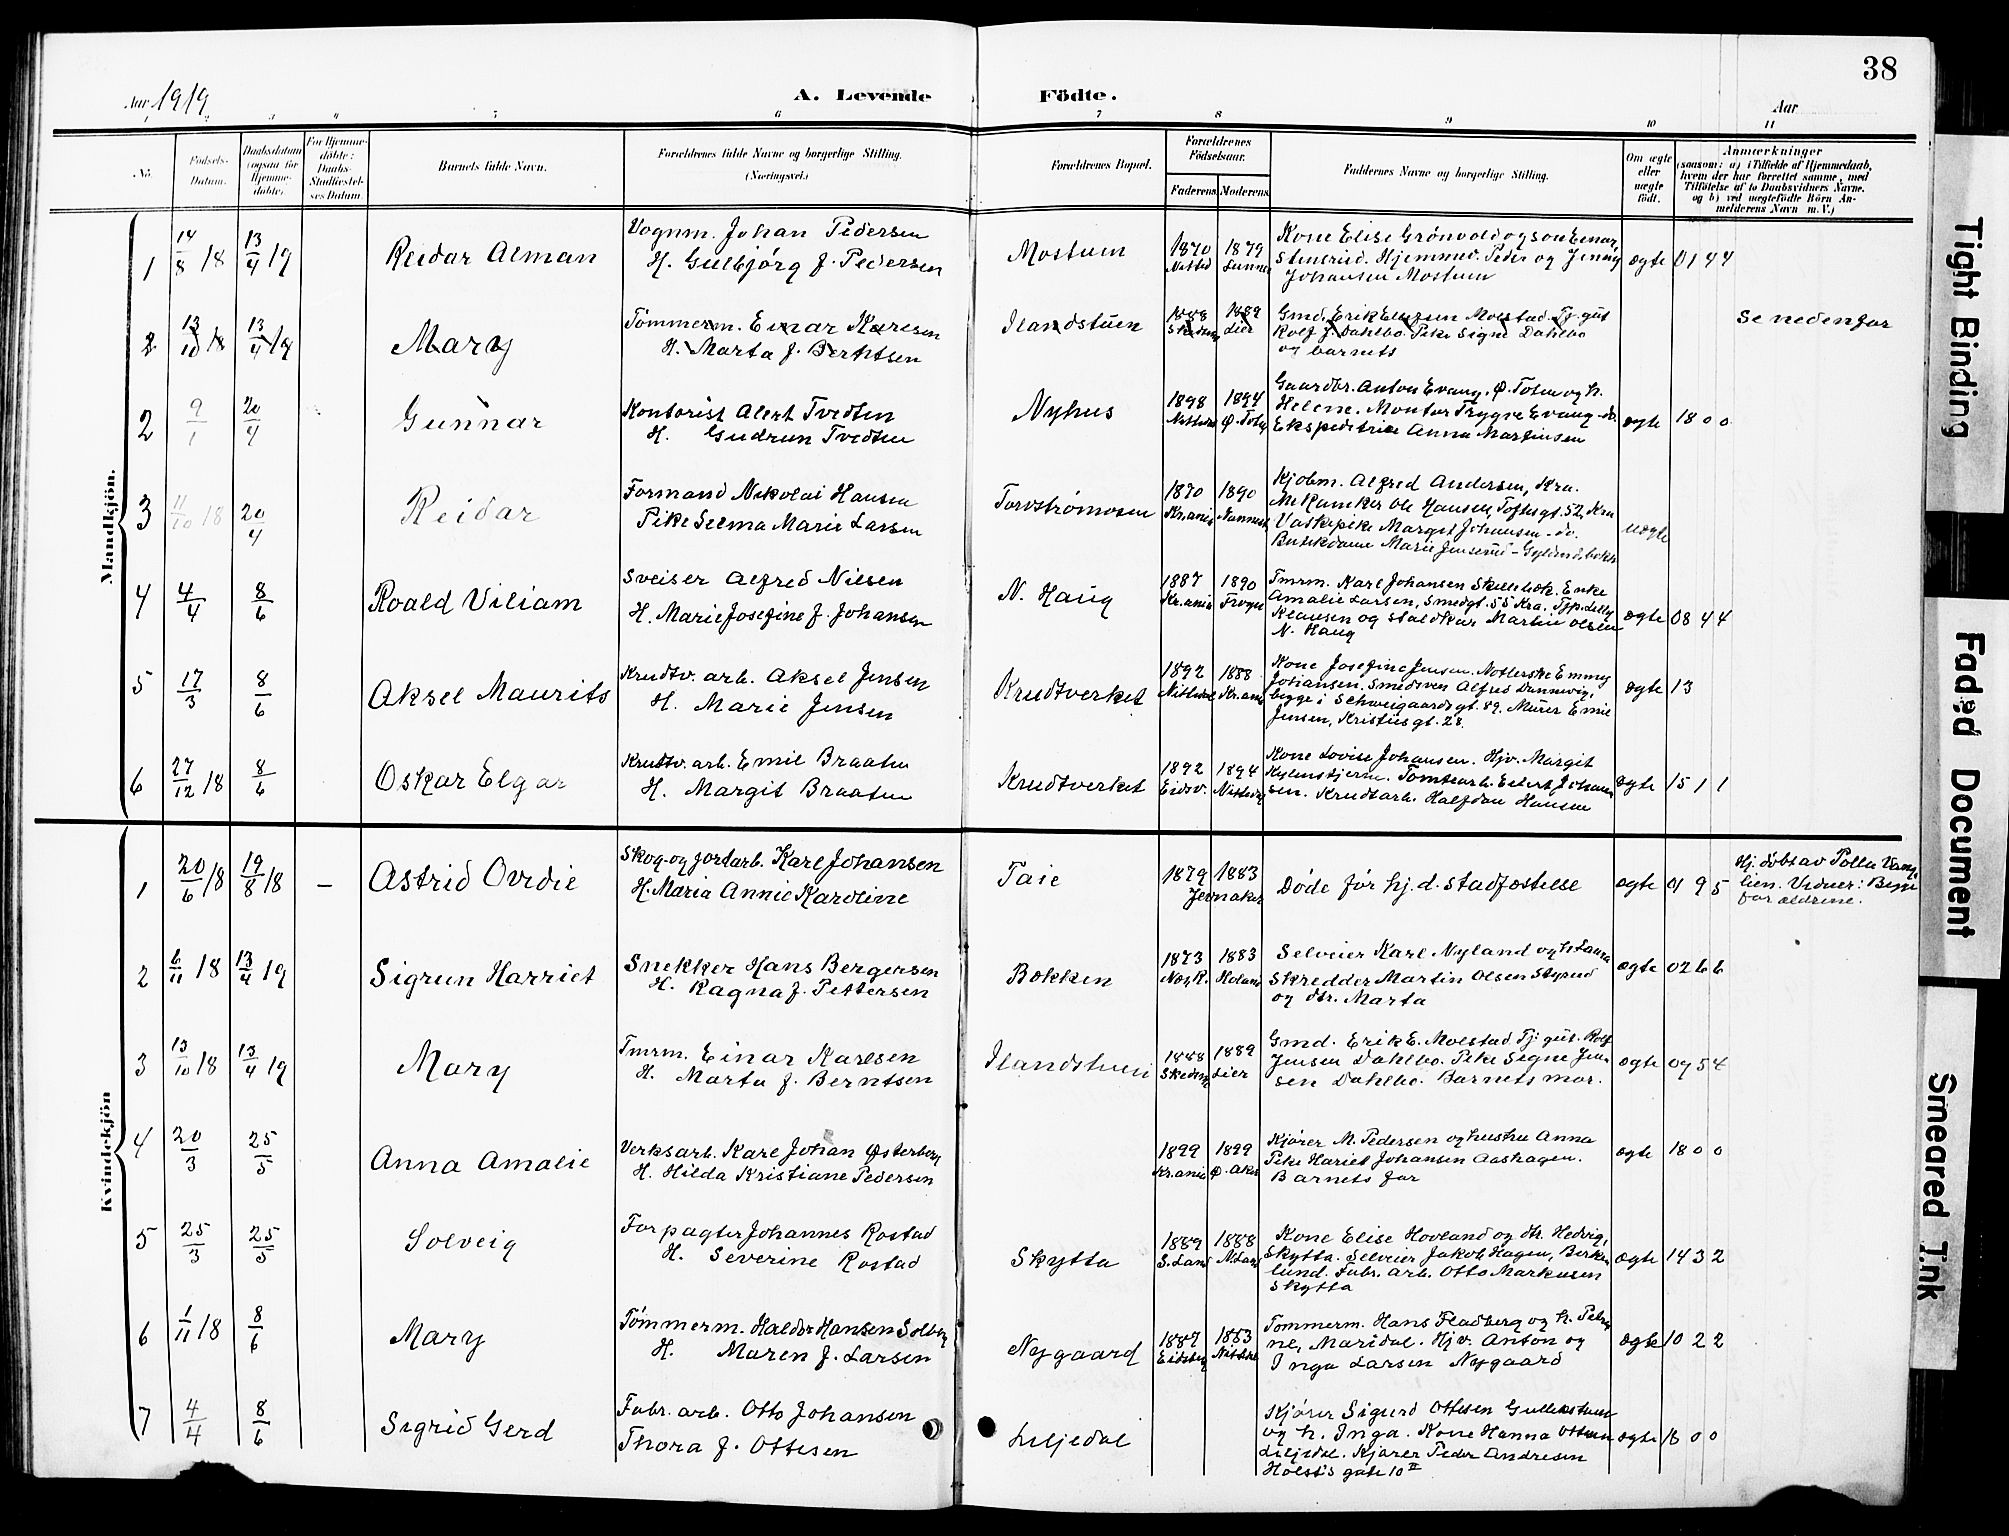 38
Aar 1919
A. Levende Födte.
Aar
3 4 5 6 7 8 9 10 11
No.
Födsels-Datum.
Daabsdatum (ogsaa for Hjemme-döbte).
For Hjemme-döbte: Daabs-Stadfæstel-ses Datum.
Barnets fulde Navn.
Forældrenes fulde Navne og borgerlige Stilling.
(Næringsvei.)
Forældrenes Bopæl.
Forældrenes Födselsaar.
Faderens. Moderens.
Faddernes Navne og borgerlige Stilling.
Om ægte eller uægte födt.
Anmærkninger
(saasom: a) i Tilfælde af Hjemmedaab,
hvem der har forrettet samme, med
Tilföielse af to Daabsvidners Navne.
og b) ved uægtefödte Börn An-
melderens Navn m. V.)
Mandkjön.
1 14/8 18 13/4 19 Reidar Alman
Vognm. Johan Pedersen
H. Gulbjórg f. Pedersen
Mostuen 1870 1879
Kone Elise Grónvold og son Einar,
Stensrud. Hjemmev. Peder og Jenny
Johansen Mostuen
ægte 01 4 4
2 13/10 18 13/4 19 Mary
Tómmerm. Einar Karlsen
H. Marta f. Berntsen
Ilandstuen 1888 1889 Skedsm Lier
Gmd. Erik Moestad Tj. gut
Rolf J. Dahlbo. Pike Signe Dahlbo
og barnets
Se nedenfor
2 9/1 20/4 Gunnar
Kontorist Alert Tvedten
H. Gudrun Tvedten
Nyhus 1898 1894 Ø. Toten
Gaardbr. Anton Evang, Ø. Toten og h.
Helene. Montør Trygve Evang - do.
Ekspeditrice Anna Martinsen
ægte 18 0 0
3 11/10 18 20/4 Reidar
Formand Nikolai Hansen
Pike Selma Marie Larsen
Torvstrómosen 1870 1890 Kr.ania
Kjøbm. Alfred Andersen, Kra.
Mekaniker Ole Hansen, Toftesgt. 52, Kra
Vaskepike Margit Johansen - do.
Butikdame Marie Jenserud -
uægte
4 4/4 8/6 Roald Viliam
Sveiser Alfred Nilsen
H. Marie Josefine f. Johansen
N. Haug 1887 1890 Kr.ania
Tmrm. Karl Johansen Skillebæk. Enke
Amalie Larsen, Smedgt. 55 Kra. Tjp. Lilly
Klausen og staldkar Martin Olsen
N. Haug
ægte 08 4 4
5 17/3 8/6 Aksel Maurits
Krudtv. arb. Aksel Jensen
H. Marie Jensen
Krudtverket 1892 1888 Nittedal Kr.ania
Kone Josefine Jensen. Emmy
Johansen. Smedsven Alfred Dannevig,
begge i Schweigaardsgt. 89. Murer Emil
Jensen, Kristiusgt. 28.
ægte 13
6 27/12 18 8/6 Oskar Elgar
Krudtv. arb. Emil Braaten
H. Margit Braaten
Krudtverket 1892 1894 Eidsv. Nittedal
Kone Lovise Johansen. Hjv. Margit
Kylenstjerne. Tomtearb. Eilert Johan-
sen. Krudtarb. Halfdan Hansen
ægte 15 1 1
Kvindekjön
1 20/6 18 19/8 18 – Astrid Ovedie
Skog- og jordarb. Karl Johansen
H. Maria Annie Karoline
Taie 1879 1883 Jevnaker
Døde før hj. d. stadfæstelse
ægte 01 9 5
Hj. døbt av Polla
lien. Vidner: Begge
forældrene.
2 6/11 18 13/4 19 Sigrun Harriet
Snekker Hans Bergersen
H. Ragna f. Pettersen
Bokken 1873 1883
Selveier Karl Nyland og h. Laura
Skredder Martin Olsen Styrud
og dtr. Marta
ægte 02 6 6
3 13/10 18 13/4 19 Mary
Tmrm. Einar Karlsen
H. Marta f. Berntsen
Ilandstuen 1888 1889 Skedsm Lier
Gmd. Erik E. Moestad Tj. gut. Rolf
Jensen Dahlbo. Pike Signe Jen-
sen Dahlbo. Barnets mor.
ægte 09 5 4
4 20/3 25/5 Anna Amalie
Verksarb. Karl Johan Østerberg
H. Hilda Kristiane Pedersen
1899 1899 Kr.ania Ø. Aker
Kjører M. Pedersen og hustru Anna
Pike Hariet Johansen Aashagen.
Barnets far
ægte 18 0 0
5 25/3 25/5 Solveig
Forpagter Johannes Rostad
H. Severine Rostad
Skytta 1889 1888 S. Land N. Land
Kone Elise Hovland og dtr. Hedvig,
Skytta. Selveier Jakob Hagen, Birke-
lund. Fabr. arb. Otto Markusen
Skytta
ægte 14 3 2
6 1/11 18 8/6 Mary
Tómmerm. Haldor Hansen Solberg
H. Maren f. Larsen
Nygaard 1887 1883 Eidsberg Nittedal
Tommerm. Hans Fladberg og h. Petri-
ne, Maridal. Hjv. Anton og
Inga Larsen Nygaard
ægte 10 2 2
7 4/4 8/6 Sigrid Gerd
Fabr. arb. Otto Johansen
Thora f. Ottesen
Liljedal
Kjører Sigurd Ottesen Gullerstuen
og h. Inga. Kone Hanna Ottesen
Liljedal. Kjører Peder Andresen
Holst's gate 10 II
ægte 18 0 0
Tight Binding
Faded Document
Smeared Ink